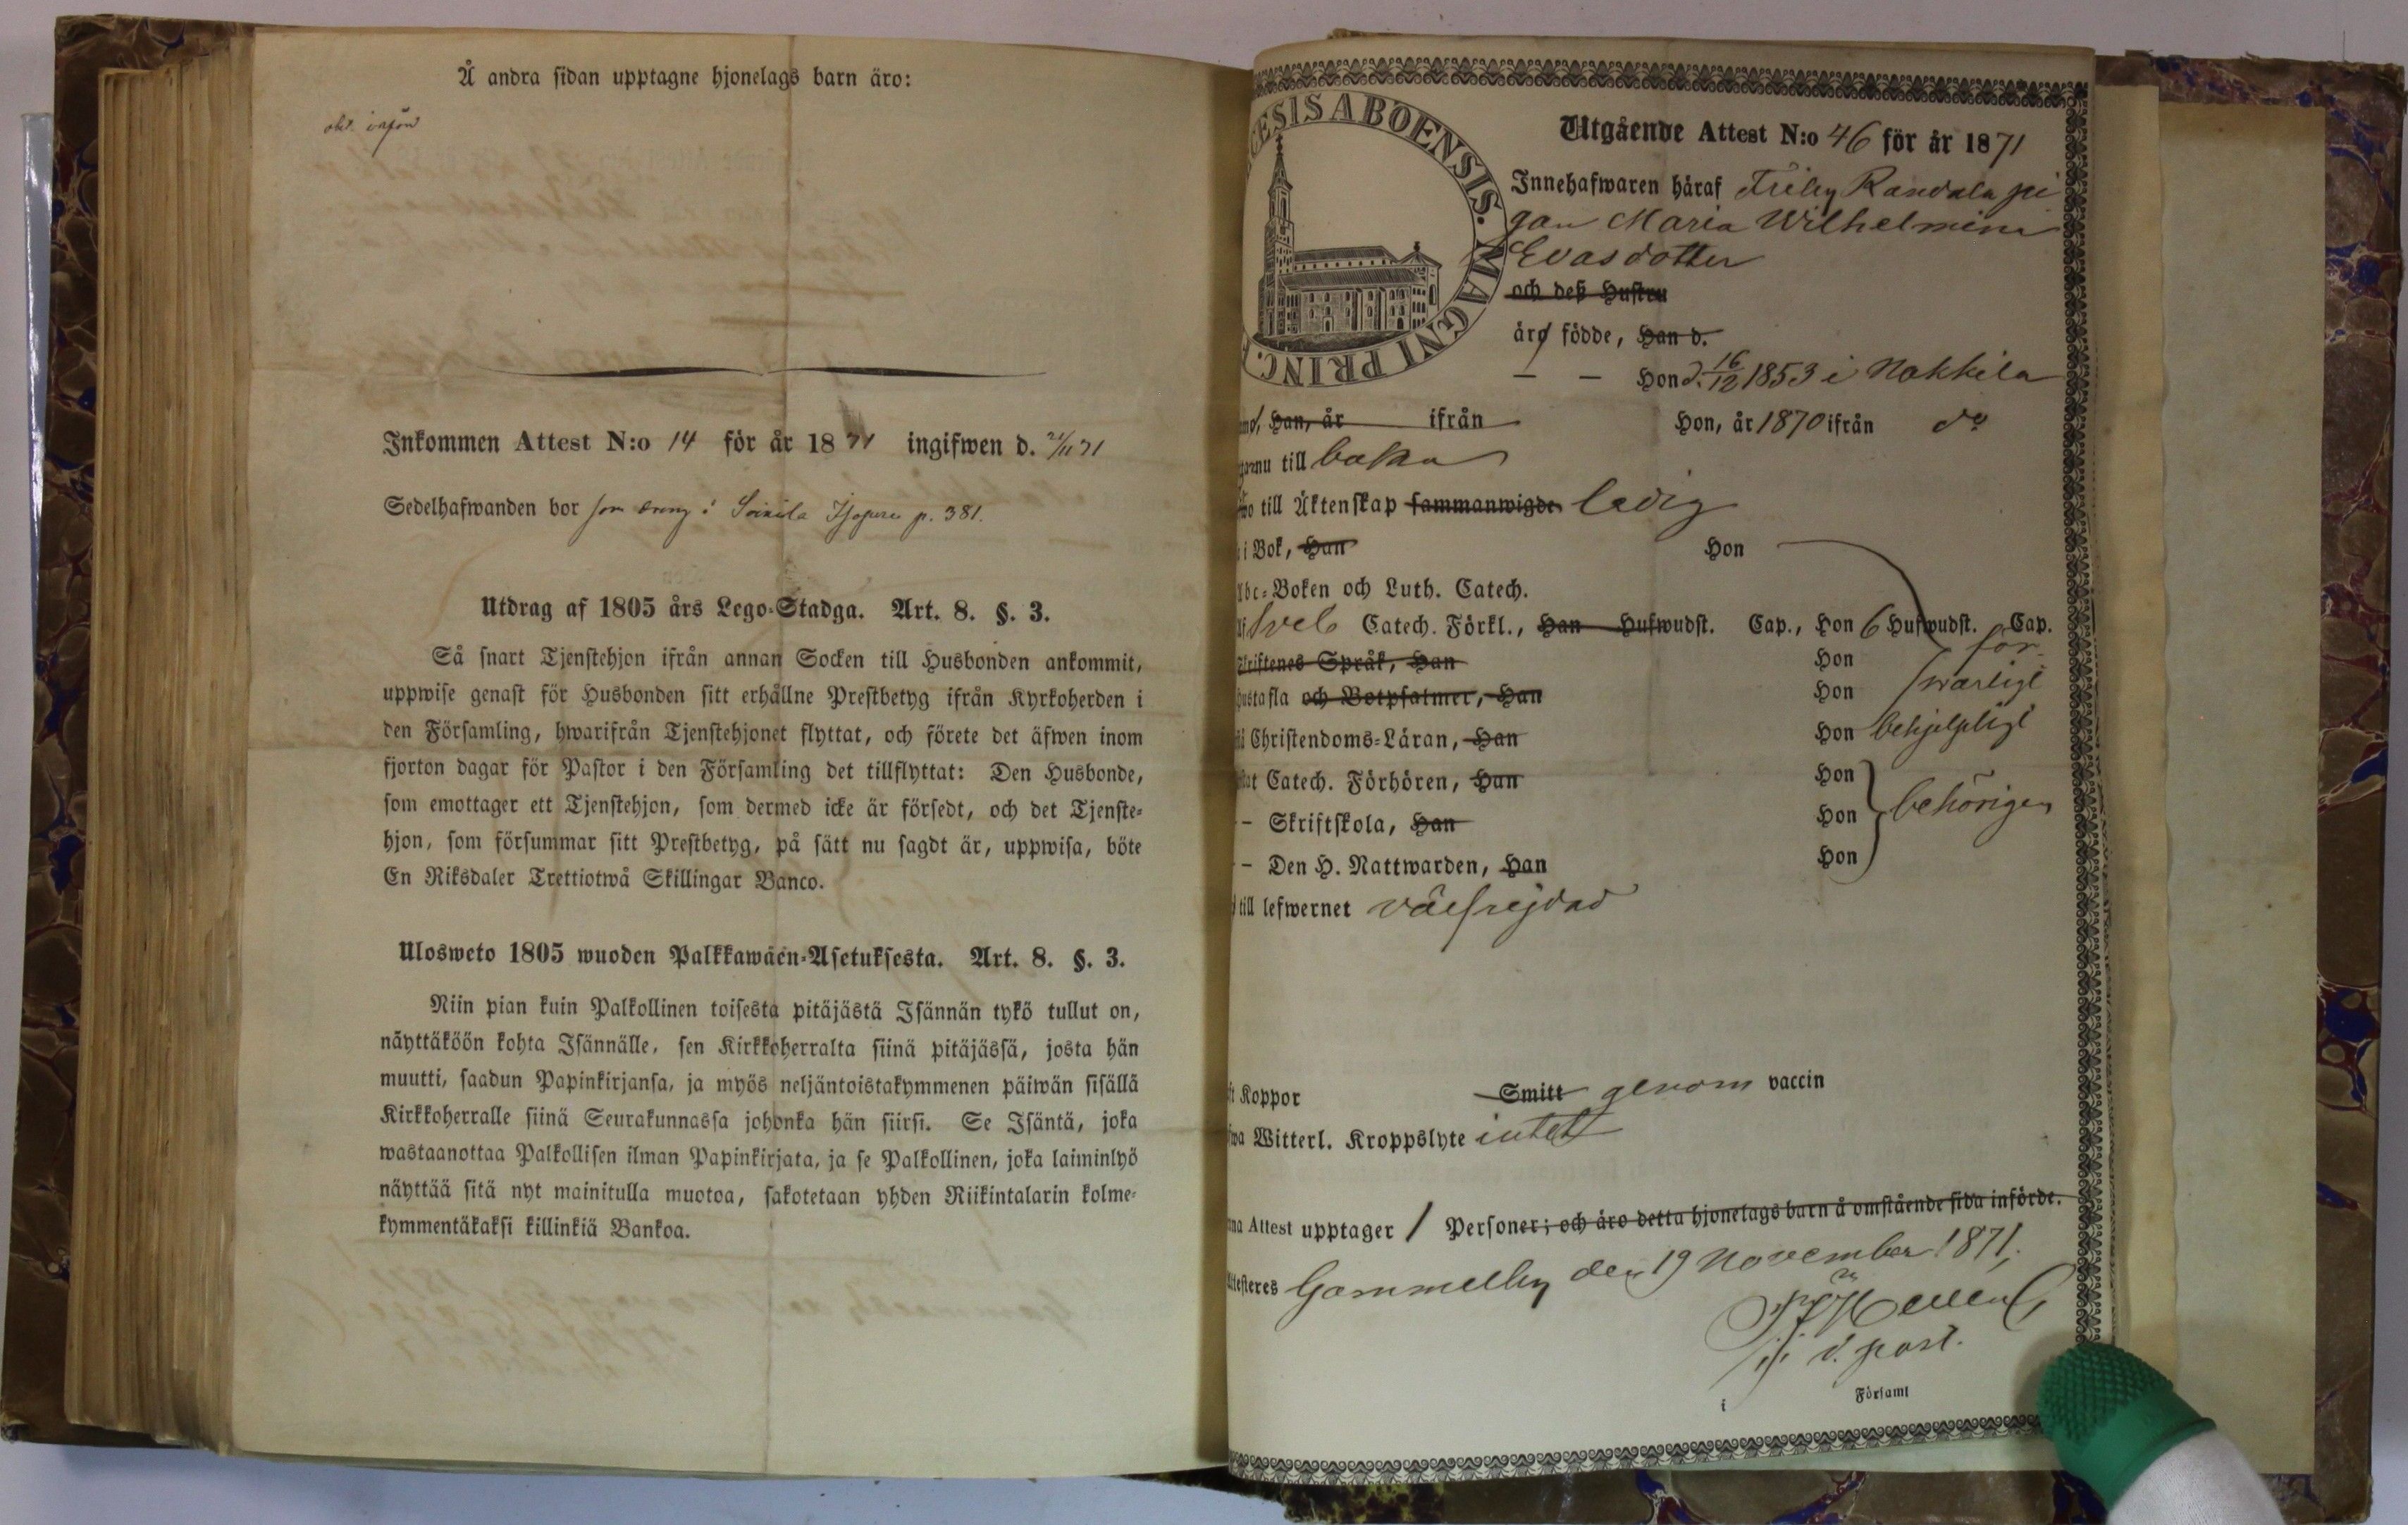 Å andra sidan upptagne hjonelags barn äro:
Inkommen Attest N:o 14 för år 1871 ingifwen d. 21/11 71
Sedelhafwanden bor som i p. 381.
Utdrag af 1805 års Lego-Stadga. Art. 8. §. 3.
Så snart Tjenstehjon ifrån annan Socken till Husbonden ankommit,
uppwise genast för Husbonden sitt erhållne Prestbetyg ifrån Kyrkoherden i
den Församling, hwarifrån Tjenstehjonet flyttat, och förete det äfwen inom
fjorton dagar för Pastor i den Församling det tillflyttat: Den Husbonde,
som emottager ett Tjenstehjon, som dermed icke är försedt, och det Tjenste-
hjon, som försummar sitt Prestbetyg, på sätt nu sagdt är, uppwisa, böte
En Riksdaler Trettiotwå Skillingar Banco.
Ulosweto 1805 wuoden Palkkawäen-Asetuksesta. Art. 8. §. 3.
Niin pian kuin Palkollinen toisesta pitäjästä Isännän tykö tullut on,
näyttäköön kohta Isännälle, sen Kirkkoherralta siinä pitäjässä, josta hän
muutti, saadun Papinkirjansa, ja myös neljäntoistakymmenen päiwän sisällä
Kirkkoherralle siinä Seurakunnassa johonka hän siirsi. Se Isäntä, joka
wastaanottaa Palkollisen ilman Papinkirjata, ja se Palkollinen, joka laiminlyö
näyttää sitä nyt mainitulla muotoa, sakotetaan yhden Riikintalarin kolme-
kymmentäkaksi killinkiä Bankoa.
CESIS ABOENSIS. MAGNI PRINC. F
Utgående Attest N:o 46 för år 1871
Innehafwaren häraf Friby Randala pi
gan Maria Wilhelmina
Evasdotter
och deß Hustru
äro födde, Han d.
— — Hon d. 16/12 1853 i Nakkila
Han, år ifrån Hon, år 1870 ifrån do
nu till baka
till Äktenskap sammanwigde ledig
i Bok, Han Hon
Abc-Boken och Luth. Catech.
Sveb Catech. Förkl., Han Hufwudst. Cap., Hon 6 Hufwudst. Cap.
Skriftenes Språk, Han Hon för-
Hustafla och Botpsalmer, Han Hon swarligt
Christendoms-Läran, Han Hon behjelpligt
Catech. Förhören, Han Hon
— Skriftskola, Han Hon behörigen
— Den H. Nattwarden, Han Hon
till lefwernet välfrejdad
Koppor Smitt genom vaccin
Witterl. Kroppslyte intet
Attest upptager 1 Personer; och äro detta hjonelags barn å omstående sida införde.
Attesteres Gammelby den 19 November 1871,
v. past.
i Församl